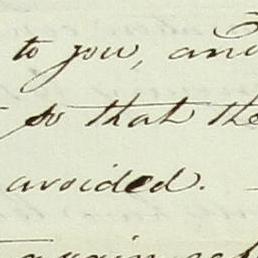 to you, and
so that the
avoided.
again